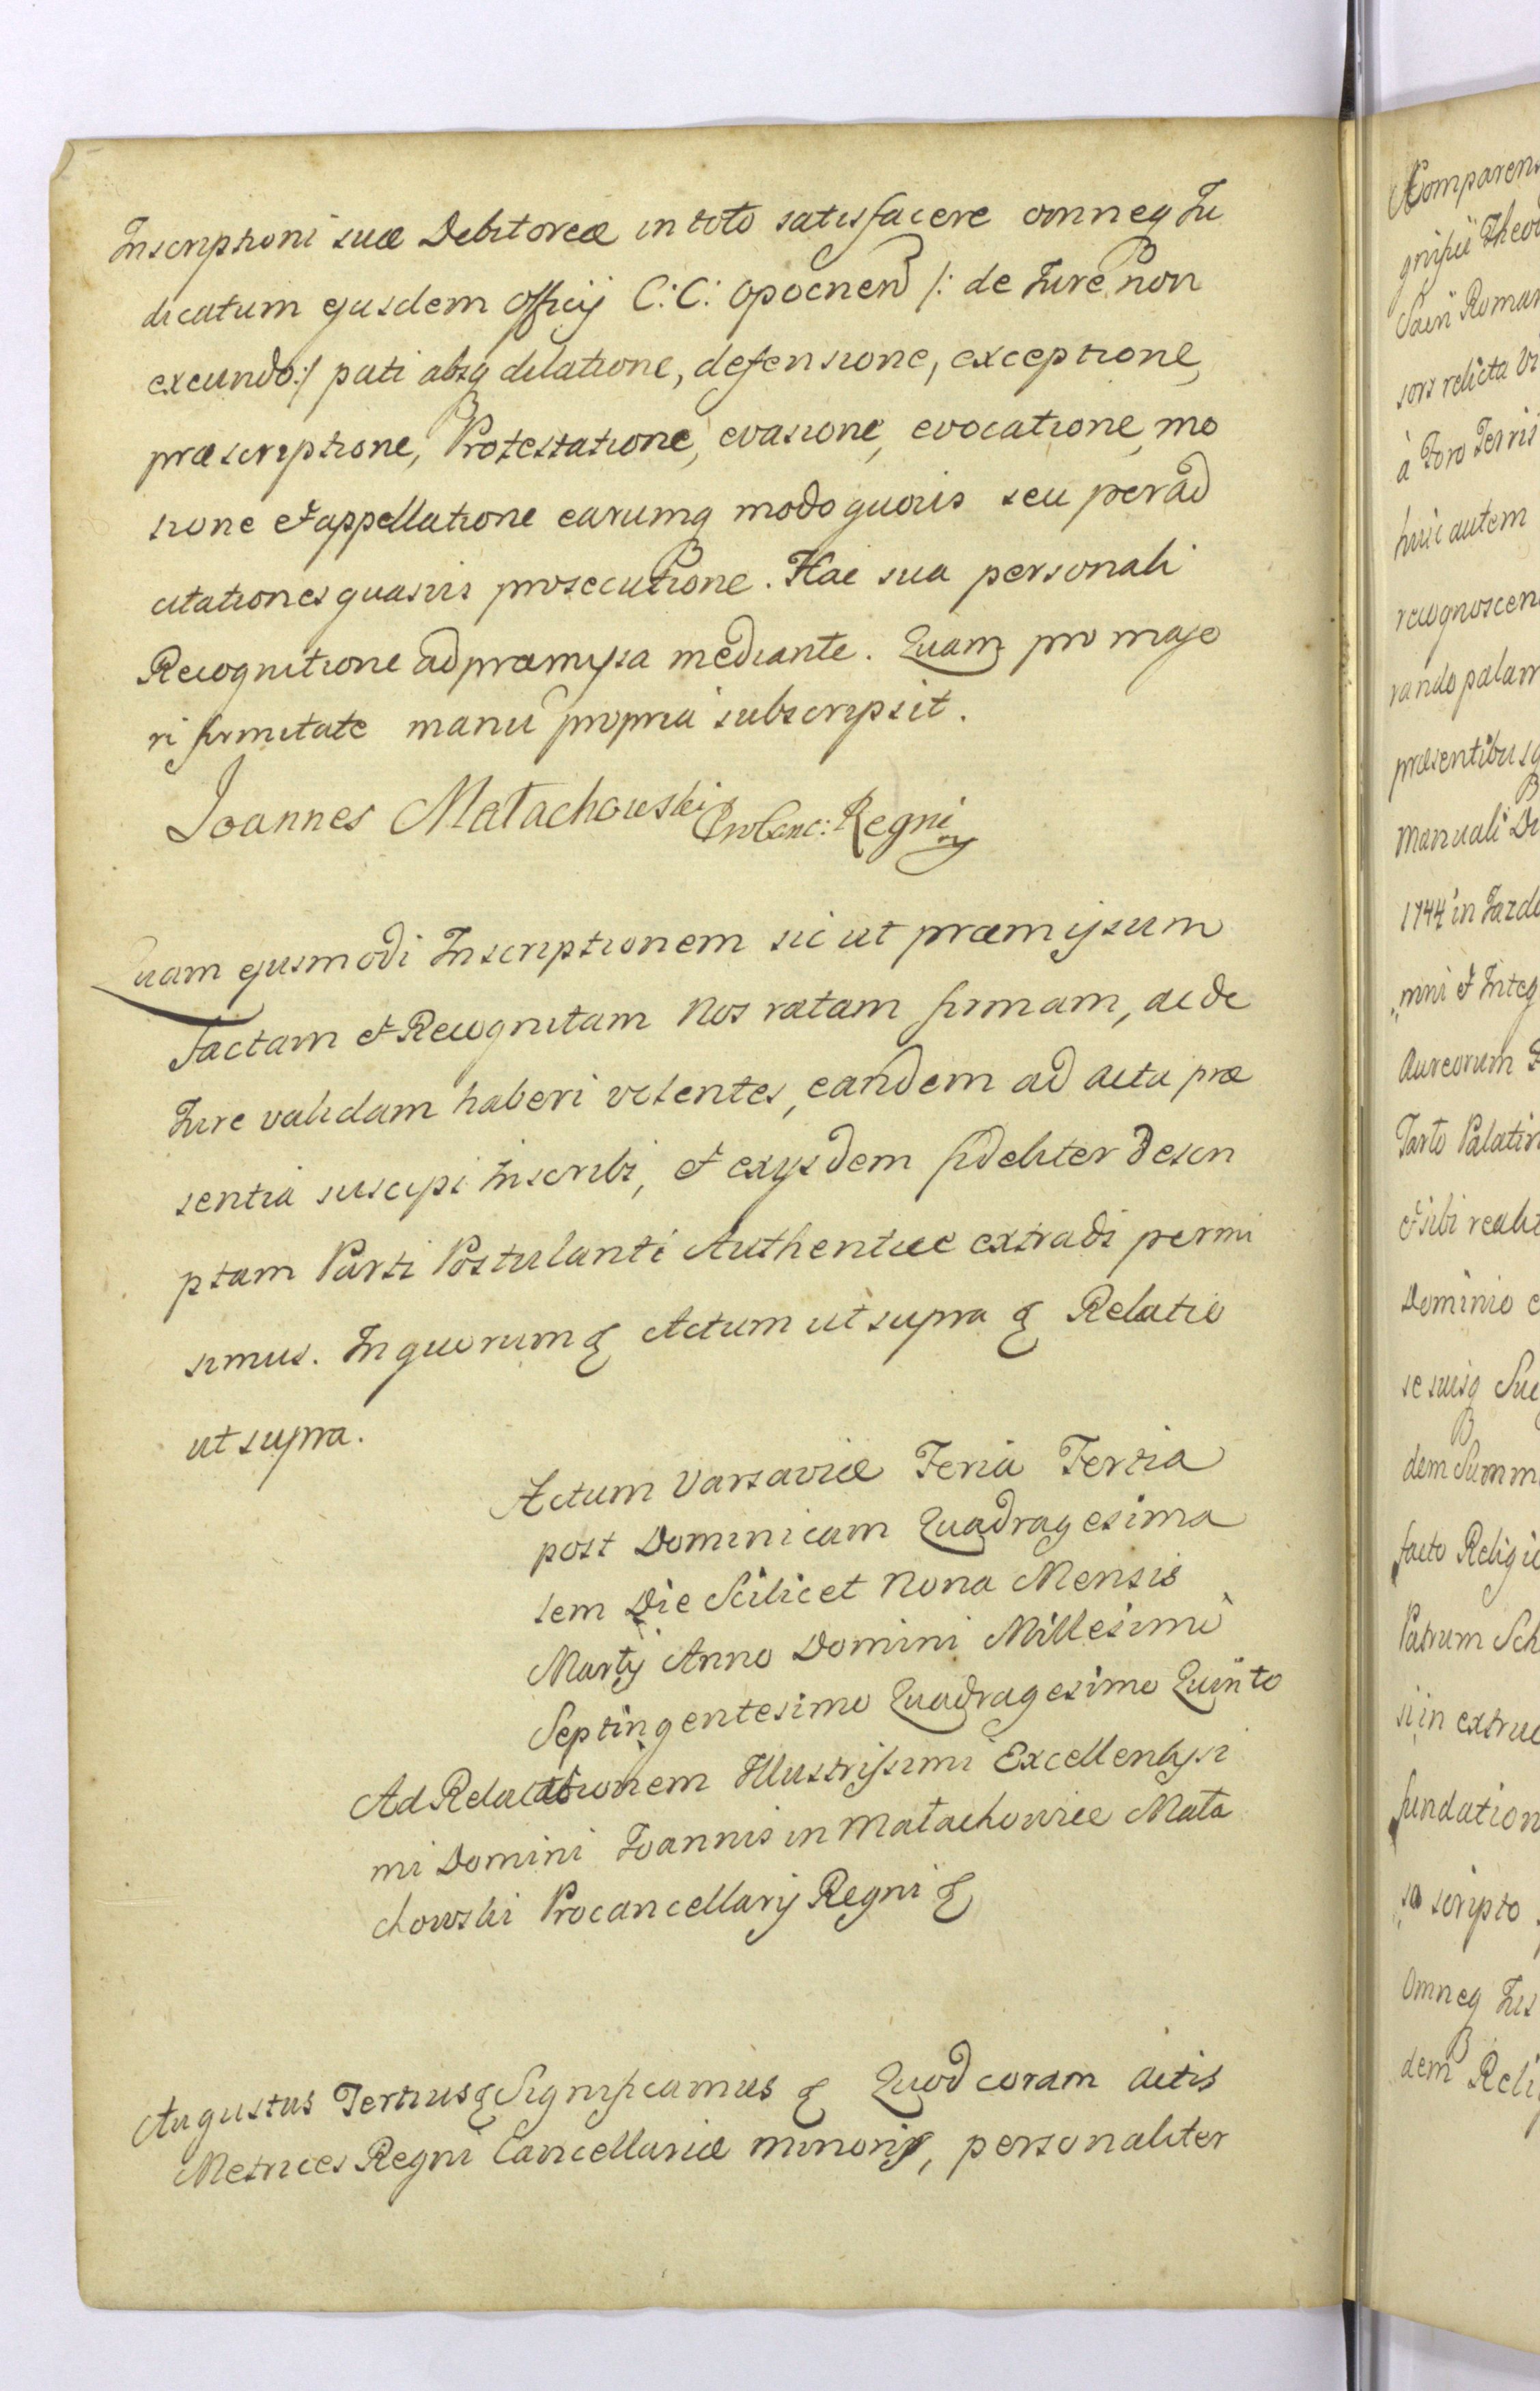 Inscriptioni suæ Debitoreæ in toto satisfacere omneq Iu
dicatum ejusdem Officij C: C: Opocnen /: de Iure non
exeundo :/ pati absq dilatione, defensione, exceptione,
præscriptione, Protestatione, evasione, evocatione, mo
tione et appellatione earumq modo quovis seu per ad
citationes quasvis prosecutione. Hac sua personali
Recognitione ad præmyssa mediante. Quam pro majo
ri firmitate manu propria subscripsit.
Joannes Małachowski ProCanc: Regni
Quam ejusmodi Inscriptionem sic ut præmijsum
Factam et Recognitam Nos ratam firmam, ac de
Iure validam haberi volentes, eandem ad acta præ
sentia suscipi Inscribi, et exijsdem fideliter descri
ptam Parti Postulanti Authentice extradi permi
simus. In quorum & Actum ut supra & Relatio
ut supra.
Actum Varsaviæ Feria Tertia
post Dominicam Quadragesima
lem Die Scilicet Nona Mensis
Martij Anno Domini Millesimo
Septingentesimo Quadragesimo Quinto
Ad Relationem Illustrissimi Excellentissi
mi Domini Ioannis in Małachowice Mała
chowski Procancellarij Regni &
Augustus Tertius & Significamus & Quod coram Actis
Metrices Regni Cancellariæ minoris, personaliter
Comparens
sors relicta
à Foro Terris
huic autem
recognoscen
rando palam
præsentibusq
Manuali
1744 in
mni et Integ
Aureorum
Palatin
et sibi realit
Dominio
se suisq Suc
dem Summ
facto Religio
Patrum Sch
si in extruc
fundation
scripto
Omneq Ius
dem Reli